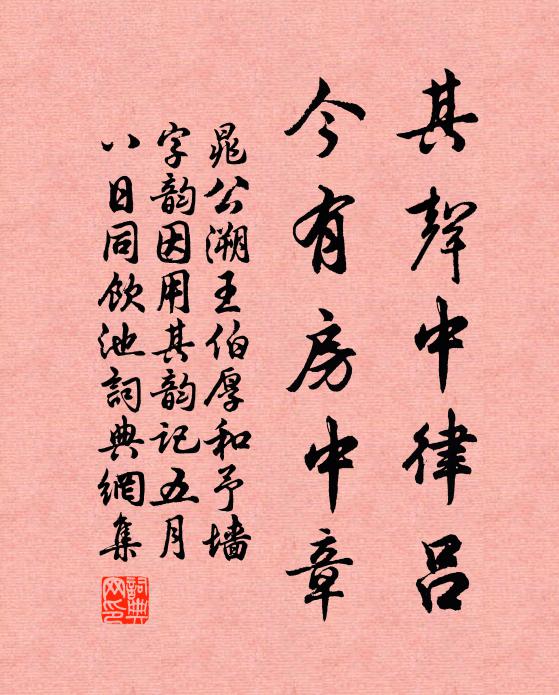 其聲中律呂
今有房中章
晁公溯王伯厚和予墻
字韵因用其韵記五月
八日同飲池詞典網集
詞典
网印